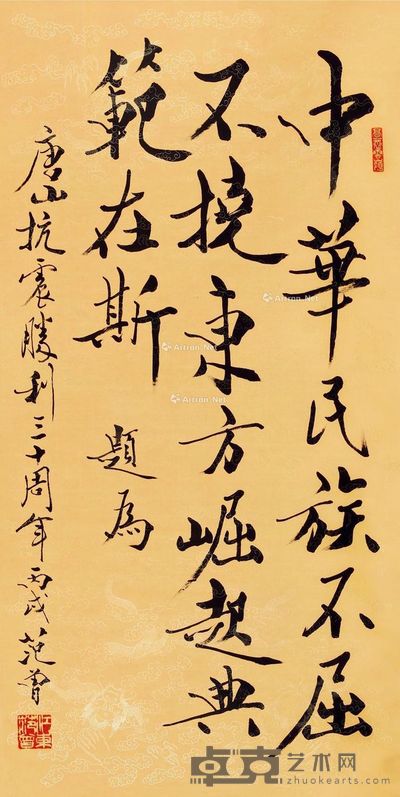 中華民族不屈
不撓東方崛起典
範在斯 題為
唐山抗震勝利三十周年丙戌范曾
Artron.Net
Artron.Net
Artron.Net
卓克艺术网
zhuokearts.com